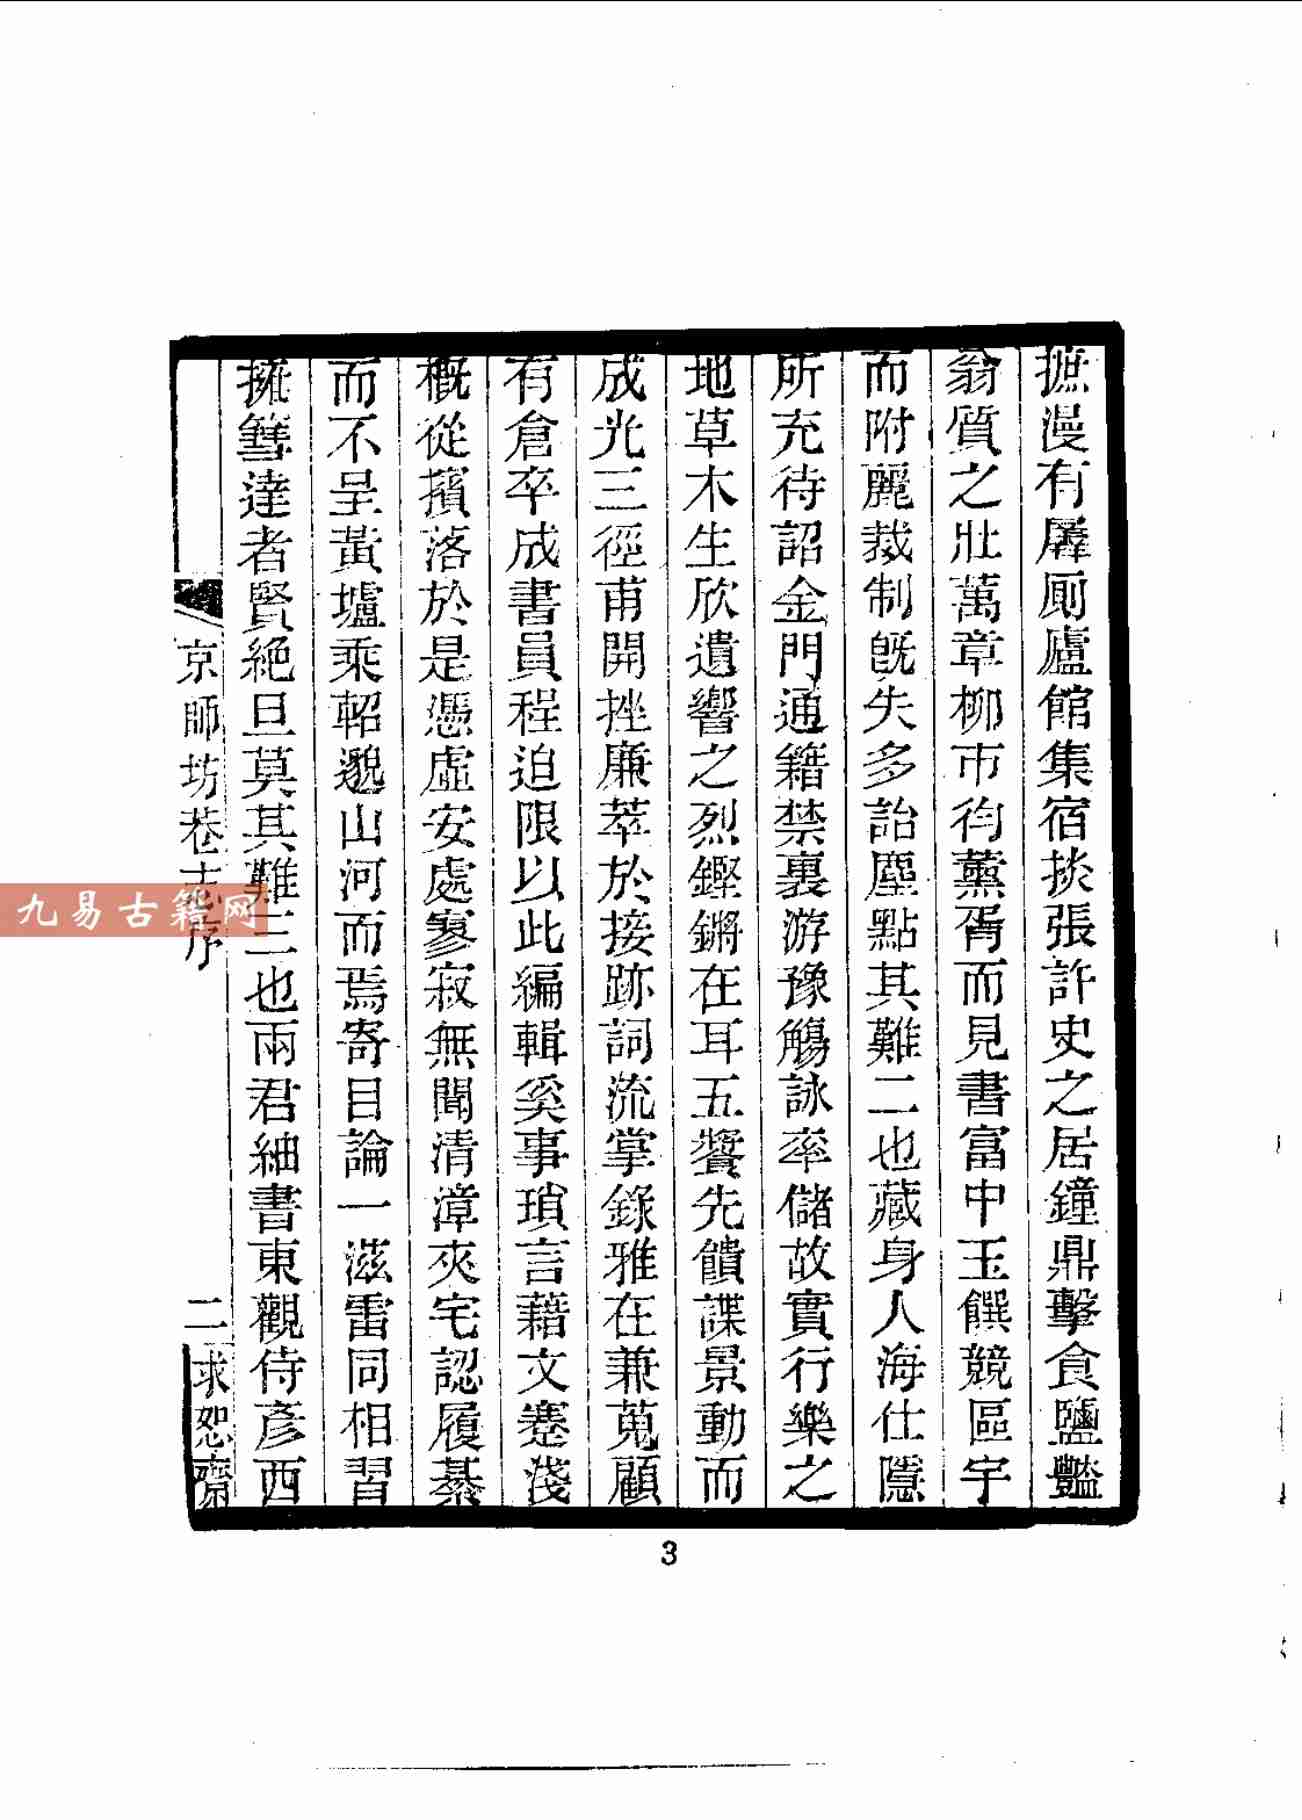 摭漫有羼厠廬館集宿掞張許史之居鐘鼎擊食鹽豔
翁質之壯萬章柳市徇薰胥而見書富中玉饌競區宇
而附麗裁制旣失多詒塵點其難二也藏身人海仕隱
所充待詔金門通籍禁裏游豫觴詠率儲故實行樂之
地草木生欣遺響之烈鏗鏘在耳五饗先饋諜景動而
成光三徑甫開挫廉萃於接跡詞流掌錄雅在兼蒐顧
有倉卒成書員程迫限以此編輯奚事瑣言藉文蹇淺
槪從擯落於是憑虛安處寥寂無聞清漳夾宅認履綦
而不呈黃壚乘軺邈山河而焉寄目論一滋雷同相習
擁篲達者賢絕旦莫其難三也兩君紬書東觀侍彥西
京師坊巷志序
二
求恕齋
3
九易古籍网